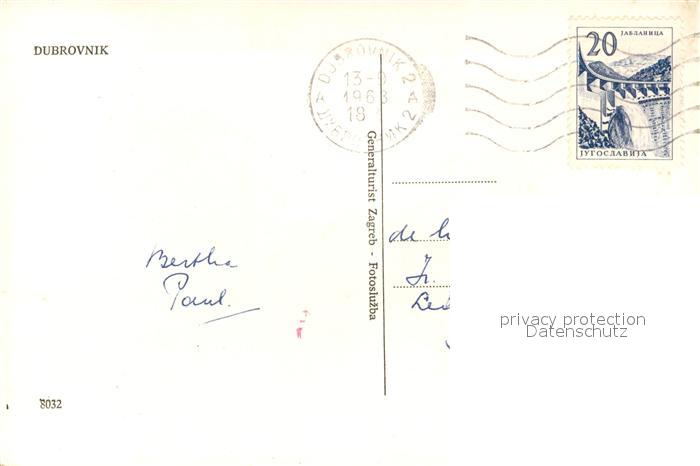 DUBROVNIK
DUBROVNIK 2
13-
1963
18
A A
20
ЈАБЛАНИЦА
ЈУГОСЛАВИЈА
Generalturist Zagreb - Fotoslužba
Bertha
Paul.
de
privacy protection
Datenschutz
8032